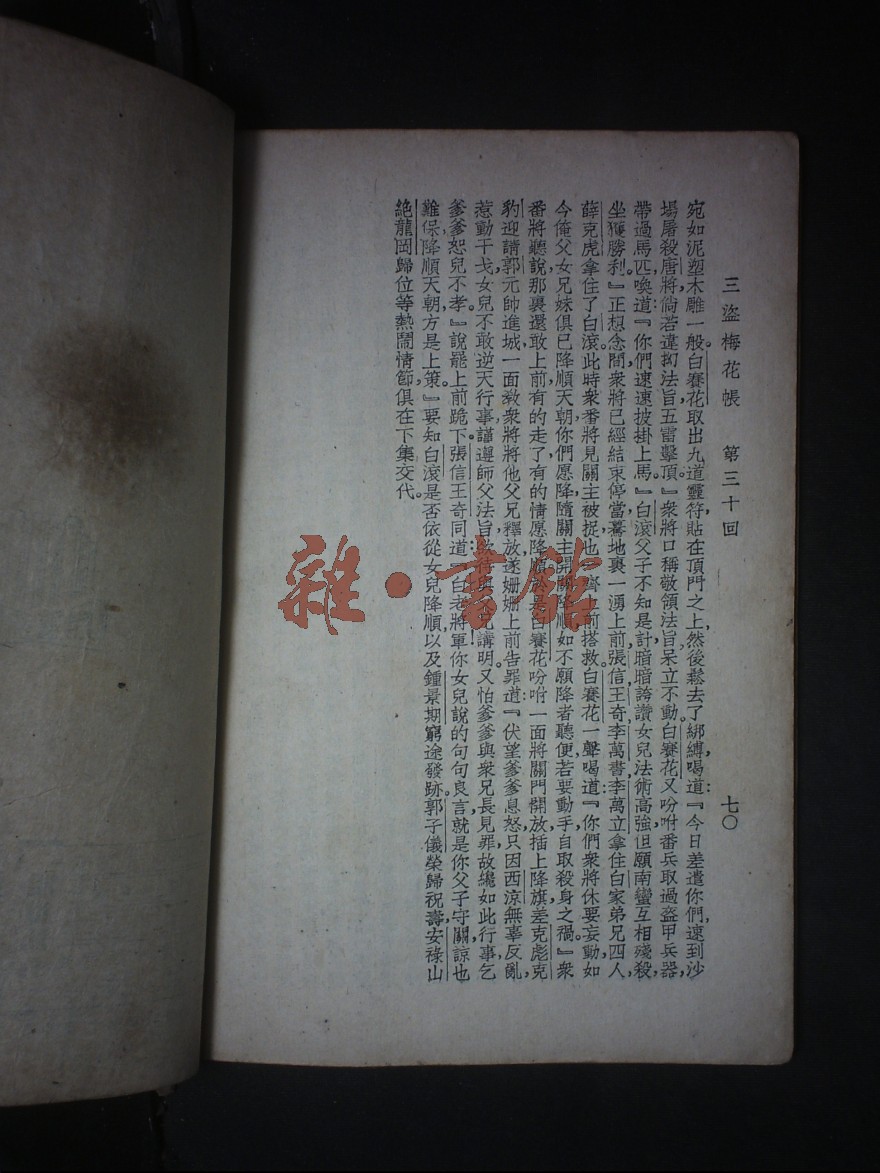 三盜梅花帳　第三十回　七〇
宛如泥塑木雕一般。白賽花取出九道靈符，貼在頂門之上，然後鬆去了綁縛，喝道：『今日差遣你們，速到沙
場屠殺唐將，倘若違拗法旨，五雷擊頂。』衆將口稱敬領法旨，呆立不動。白賽花又吩咐番兵取過盔甲兵器，
帶過馬匹，喚道：『你們速速披掛上馬。』白滾父子不知是計，暗暗誇讚女兒法術高強，但願南蠻互相殘殺，
坐獲勝利。』正想念間，衆將已經結束停當，驀地裏一湧上前，張信王奇李萬書李萬立拿住白家弟兄四人，
薛克虎拿住了白滾。此時衆番將見關主被捉，也一齊上前搭救，白賽花一聲喝道：『你們衆將休要妄動，如
今俺父女兄妹俱已降順天朝，你們愿降隨關主開關降順，如不願降者聽便，若要動手，自取殺身之禍。』衆
番將聽說，那裏還敢上前，有的走了，有的情愿降順，於是白賽花吩咐一面將關門開放，插上降旗，差克彪克
豹迎請郭元帥進城，一面教衆將將他父兄釋放，遂姍姍上前告罪道：『伏望爹爹息怒，只因西涼無辜反亂，
惹動干戈，女兒不敢逆天行事，謹遵師父法旨，欲待與父兄講明，又怕爹爹與衆兄長見罪，故纔如此行事，乞
爹爹恕兒不孝。』說罷，上前跪下。張信王奇同道：『白老將軍，你女兒說的句句良言，就是你父子守關，諒也
難保，降順天朝，方是上策。』要知白滾是否依從女兒降順，以及鍾景期窮途發跡，郭子儀榮歸祝壽，安祿山
絶龍岡歸位等熱鬧情節，俱在下集交代。
雜·書館